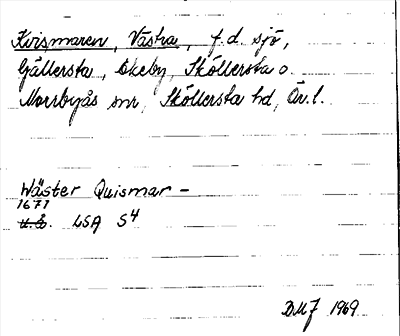 Kvismaren, Västra, f.d. sjö,
Gällersta, Ekeby, Sköllersta o.
Norrbyås snr, Sköllersta hd, Ör.l.
Wäster Quismar -
1677
u.å. LSA S4
DMJ 1969